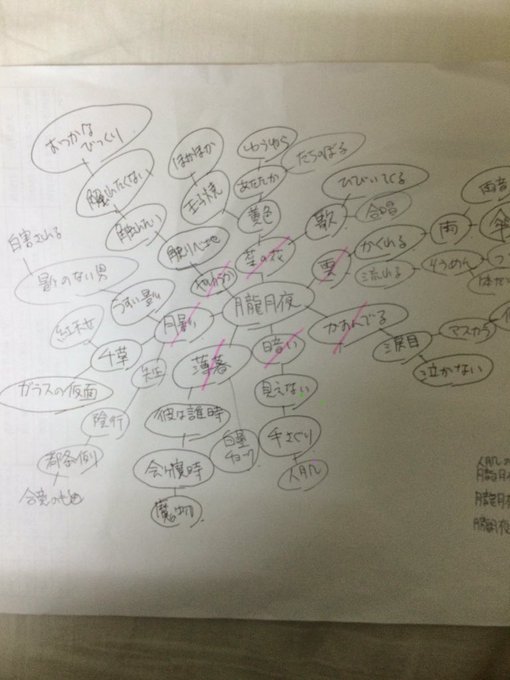 おっかな
びっくり
触れたくない
触れたい
触り心地
やわらか
ほかほか
玉子焼
ゆらゆら
たちのぼる
あたたか
黄色
菜の花
ひびいてくる
歌
合唱
雲
かくれる
流れる
雨
雨音
そうめん
朧月夜
かすんでる
涙目
マスカラ
泣かない
暗い
見えない
手さぐり
人肌
薄暮
彼は誰時
白墨
チョーク
会う魔時
魔の切
月影
うすい影
影のない男
白書される
千草
紅天女
ガラスの仮面
陰行
都条例
人肌の
朧月
朧月夜
朧月夜